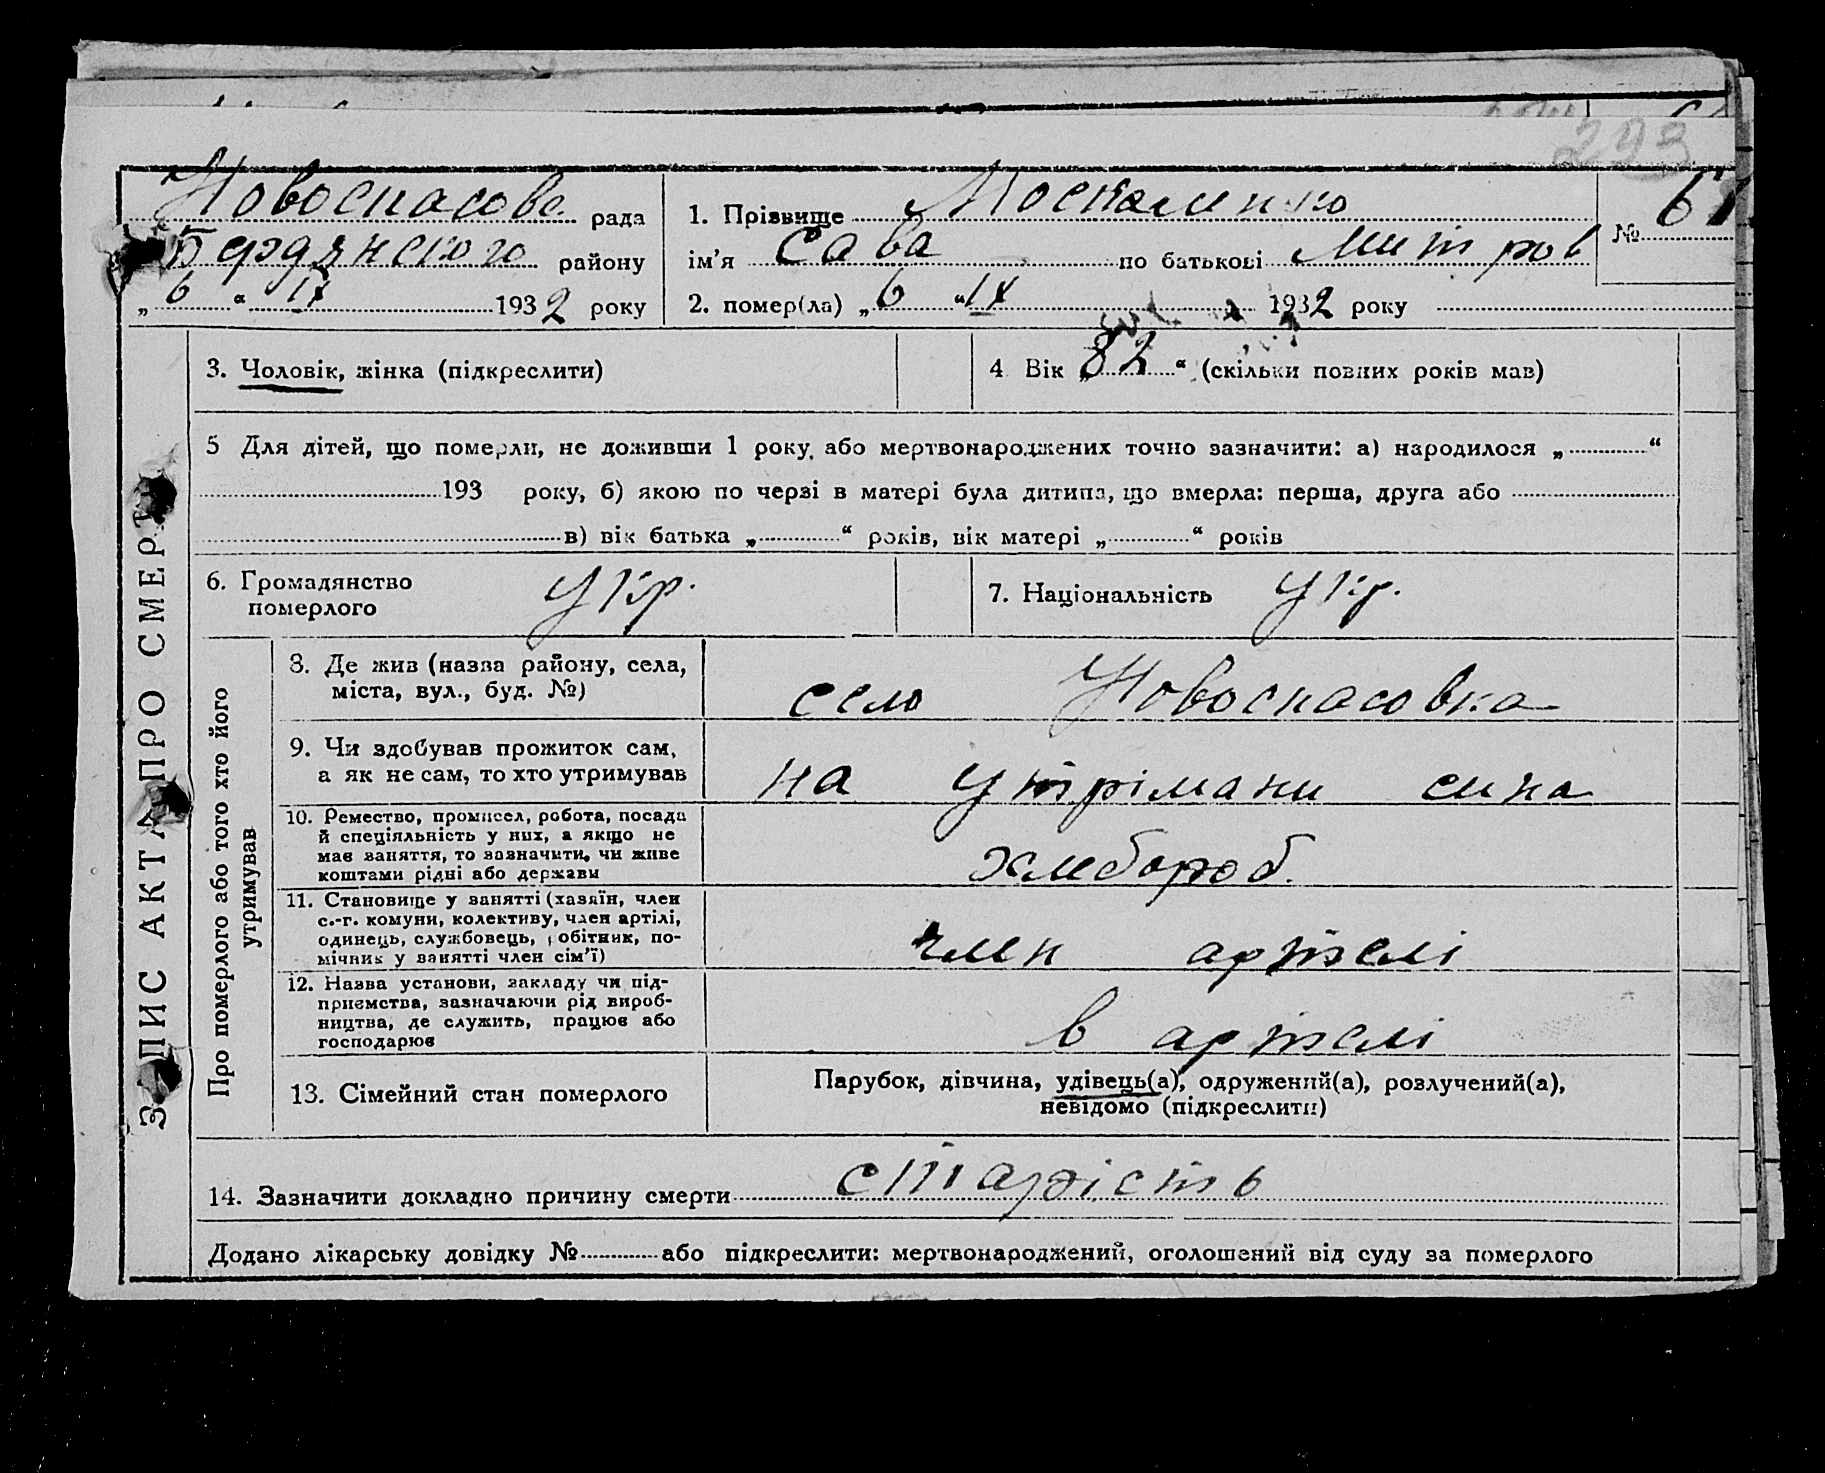 293
Новоспасове рада
Бердянского району
„ 6 “ IX 1932 року
1. Прізвище Москаленко
ім'я Сава по батькові Митров
2. помер(ла) „ 6 “ IX 1932 року
№ 61
ЗАПИС АКТА ПРО СМЕРТЬ
3. Чоловік, жінка (підкреслити)
4 Вік „ 82 “ (скільки повних років мав)
5 Для дітей, що померли, не доживши 1 року, або мертвонароджених точно зазначити: а) народилося „ “
193 року, б) якою по черзі в матері була дитина, що вмерла: перша, друга або
в) вік батька „ “ років, вік матері „ “ років
6. Громадянство
померлого укр.
7. Національність укр.
Про померлого або того хто його
утримував
8. Де жив (назва району, села,
міста, вул., буд. №)
село Новоспасовка
9. Чи здобував прожиток сам,
а як не сам, то хто утримував
на утрімани сина
10. Ремество, промисел, робота, посада
й спеціяльність у них, а якщо не
має заняття, то зазначити, чи живе
коштами рідні або держави
хлебороб.
11. Становище у занятті (хазяїн, член
с.-г. комуни, колективу, член артілі,
одинець, службовець, робітник, по-
мічник у занятті член сім'ї)
член артелі
12. Назва установи, закладу чи під-
приємства, зазначаючи рід вироб-
ництва, де служить, працює або
господарює
в артелі
13. Сімейний стан померлого
Парубок, дівчина, удівець(а), одружений(а), розлучений(а),
невідомо (підкреслити)
14. Зазначити докладно причину смерти старість
Додано лікарську довідку № або підкреслити: мертвонароджений, оголошений від суду за померлого